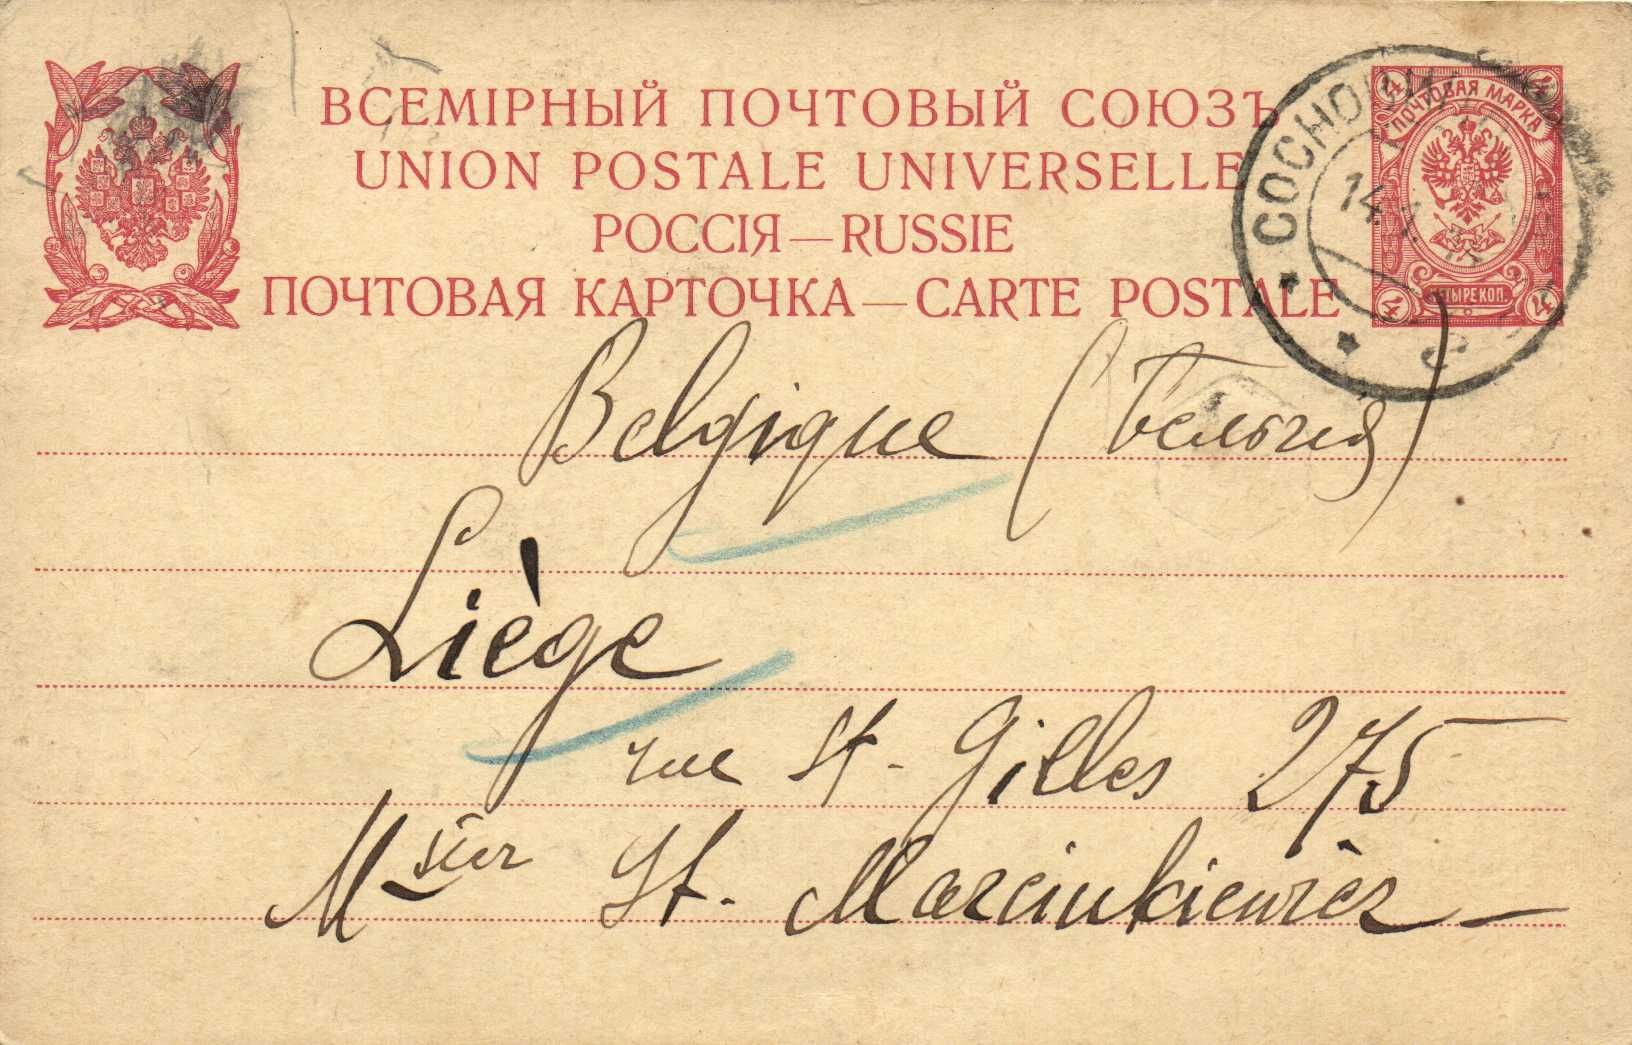 ВСЕМІРНЫЙ ПОЧТОВЫЙ СОЮЗЪ
UNION POSTALE UNIVERSELLE
РОССІЯ—RUSSIE
ПОЧТОВАЯ КАРТОЧКА—CARTE POSTALE
4 4
ПОЧТОВАЯ МАРКА
ЧЕТЫРЕ КОП.
4 4
14
Belgique (Бельгія)
Liège
rue St. Gilles 275
Msieur St. Marcinkiewicz